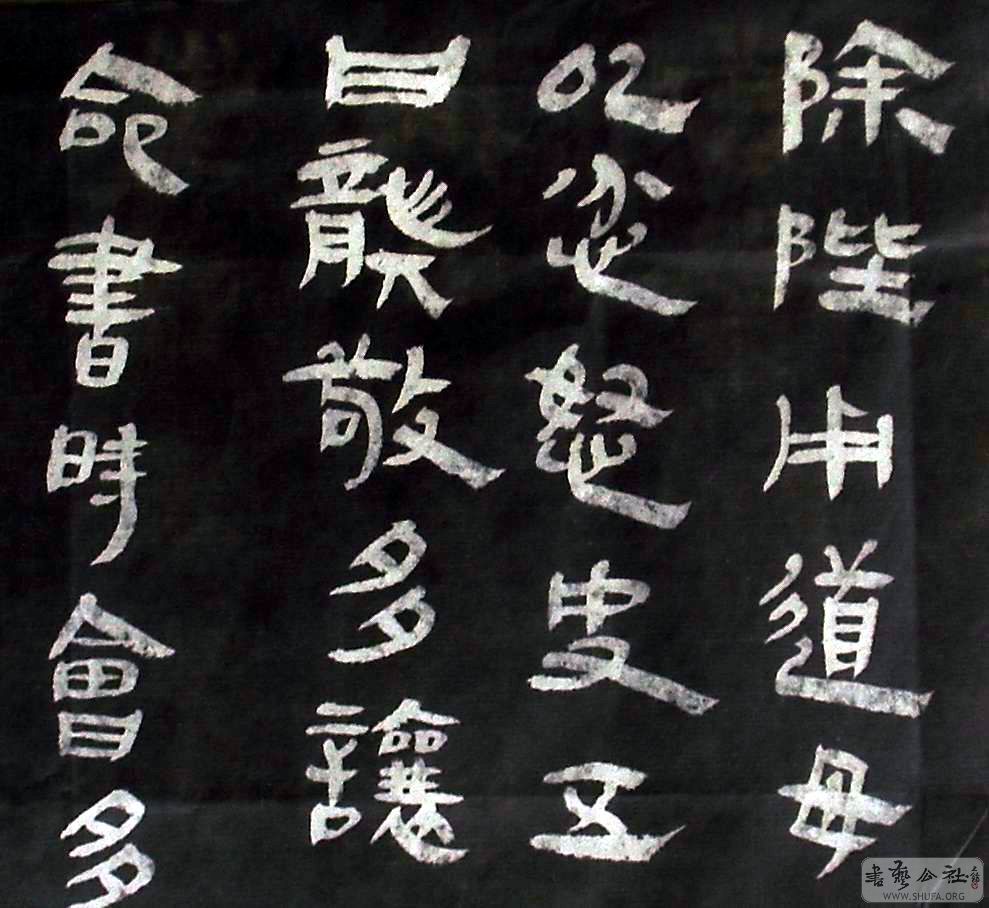 除陛甬道毋
以忿怒夬五
曰龔敬多讓
命書時會多
書藝公社
WWW.SHUFA.ORG